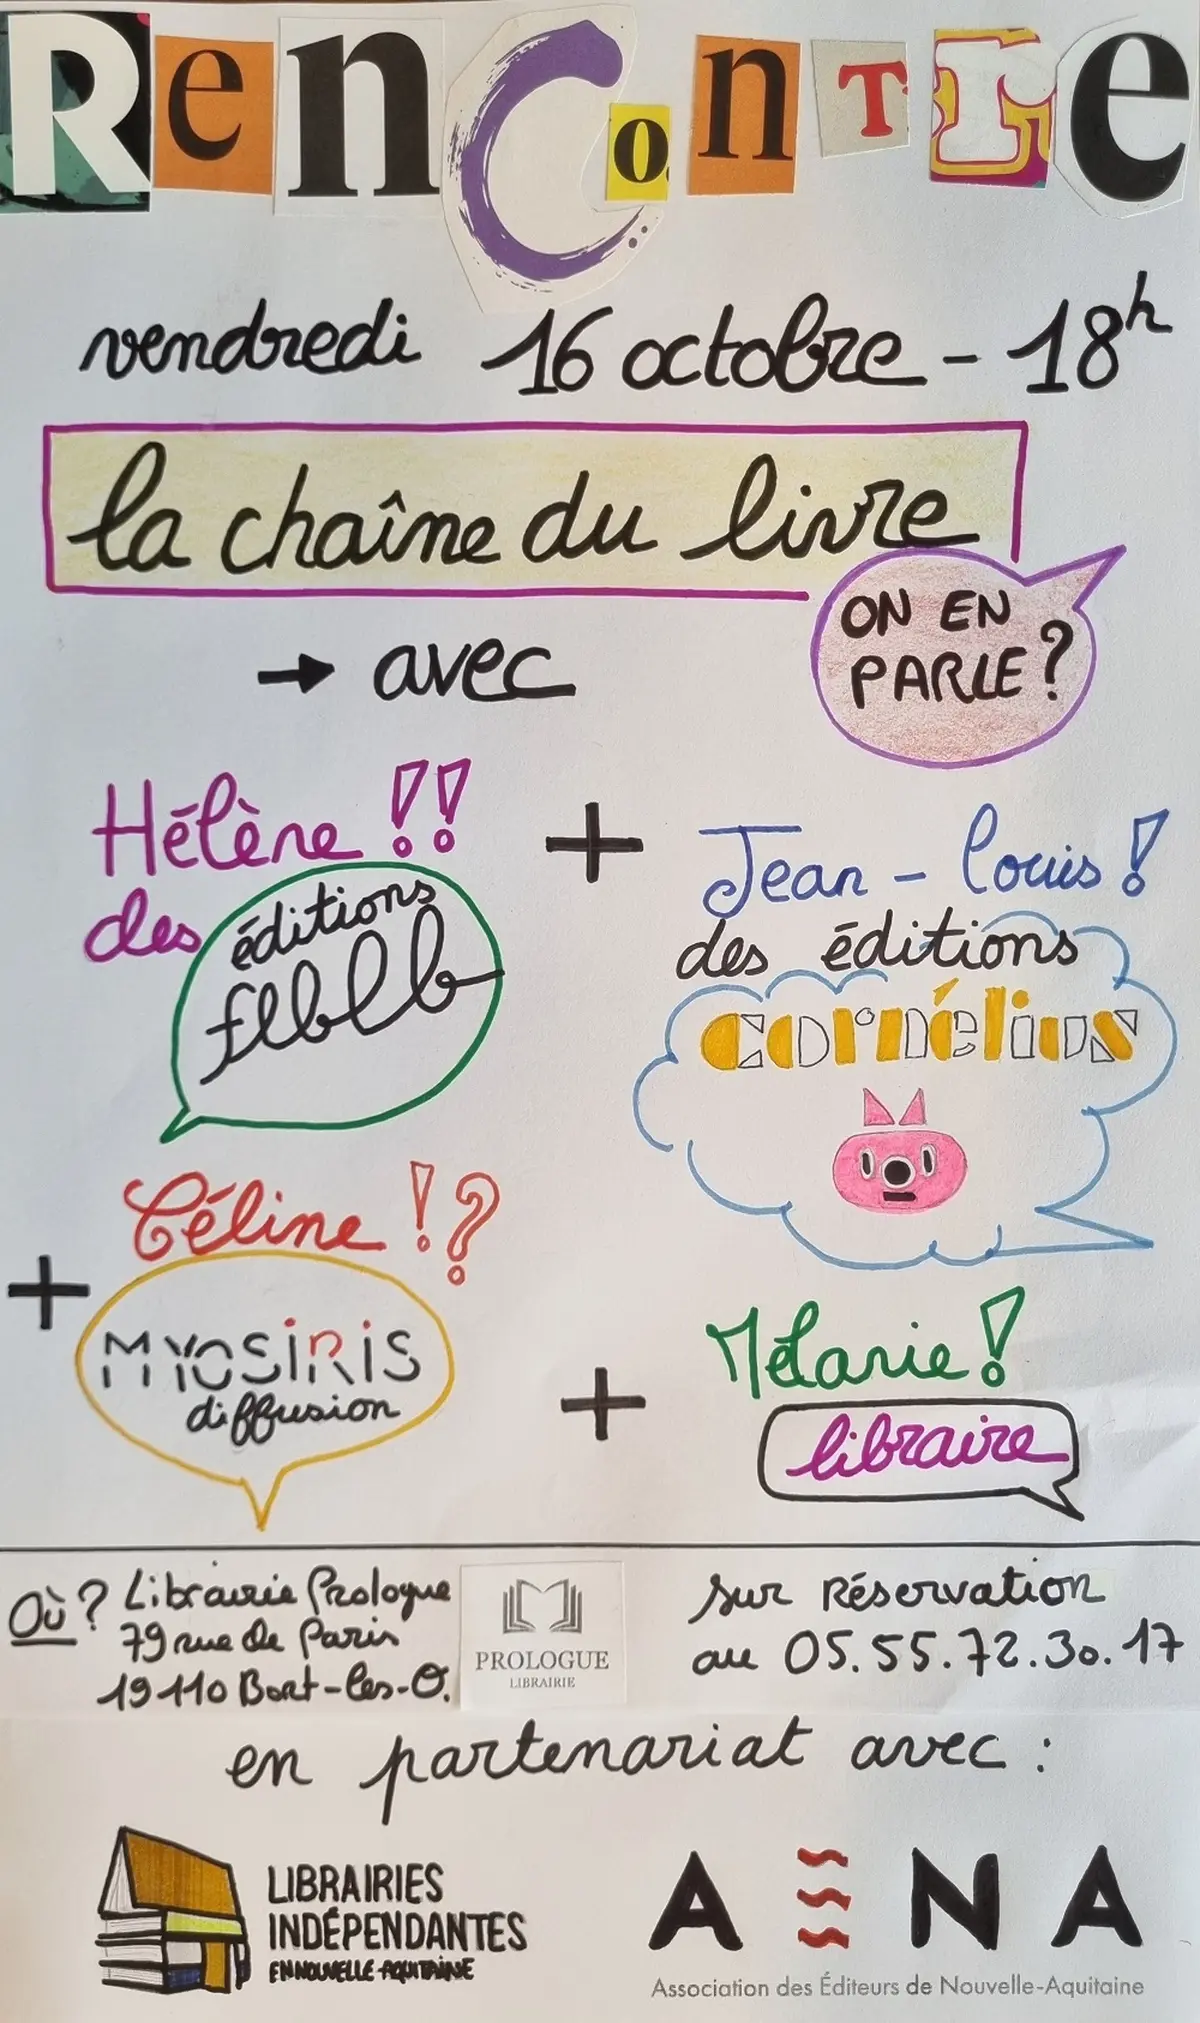 RenContre
vendredi 16 octobre - 18h
la chaîne du livre
ON EN
PARLE?
→ avec
Hélène!!
des
éditions
flblb
+
Jean-louis!
des éditions
cornélius
+
Céline!?
MYOSIRIS
diffusion
+
Mélanie!
libraire
Où? Librairie Prologue
79 rue de Paris
19110 Bort-les-O.
PROLOGUE
LIBRAIRIE
sur Réservation
au 05.55.72.30.17
en partenariat avec :
LIBRAIRIES
INDÉPENDANTES
EN NOUVELLE-AQUITAINE
AENA
Association des Éditeurs de Nouvelle-Aquitaine